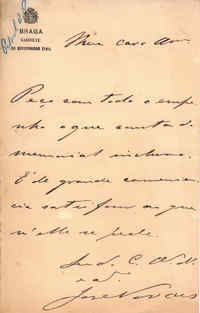 BRAGA
GABINETE
DO GOVERNADOR CIVIL
Meu caro Am
Peço com todo o empe
nho o que consta do
memorial incluso.
É de grande convenien
cia satisfazer ao que
n'elle se pede.
José Novaes